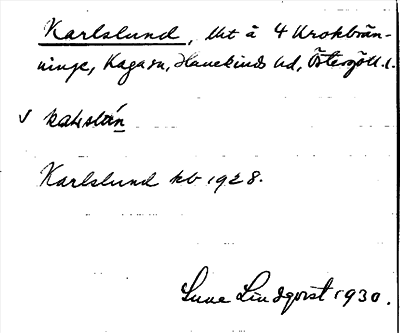 Karlslund, lht å 4 Krokbrän-
ninge, Kaga sn, Hanekinds hd, Östergötl. l.
Karlslund kb 1928.
Sune Lindqvist 1930.